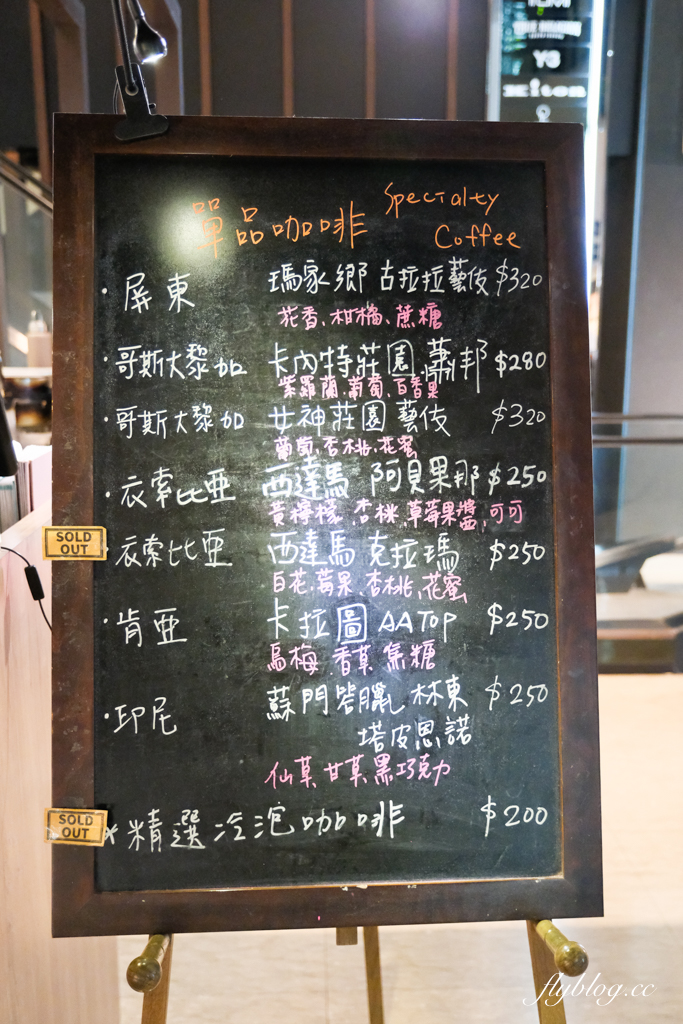 單品咖啡 Specialty
Coffee
・屏東 瑪家鄉 古拉拉藝伎 $320
花香、柑橘、蔗糖
・哥斯大黎加 卡內特莊園 蕭邦 $280
紫羅蘭、葡萄、百香果
・哥斯大黎加 女神莊園 藝伎 $320
葡萄、杏桃、花蜜
・衣索比亞 西達馬 阿貝果那 $250
黃檸檬、杏桃、草莓果醬、可可
SOLD OUT
・衣索比亞 西達馬 克拉瑪 $250
白花、莓果、杏桃、花蜜
・肯亞 卡拉圖 AA TOP $250
烏梅 香草 焦糖
・印尼 蘇門答臘 林東 $250
塔皮恩諾
仙草 甘草 黑巧克力
SOLD OUT
* 精選冷泡咖啡 $200
flyblog.cc